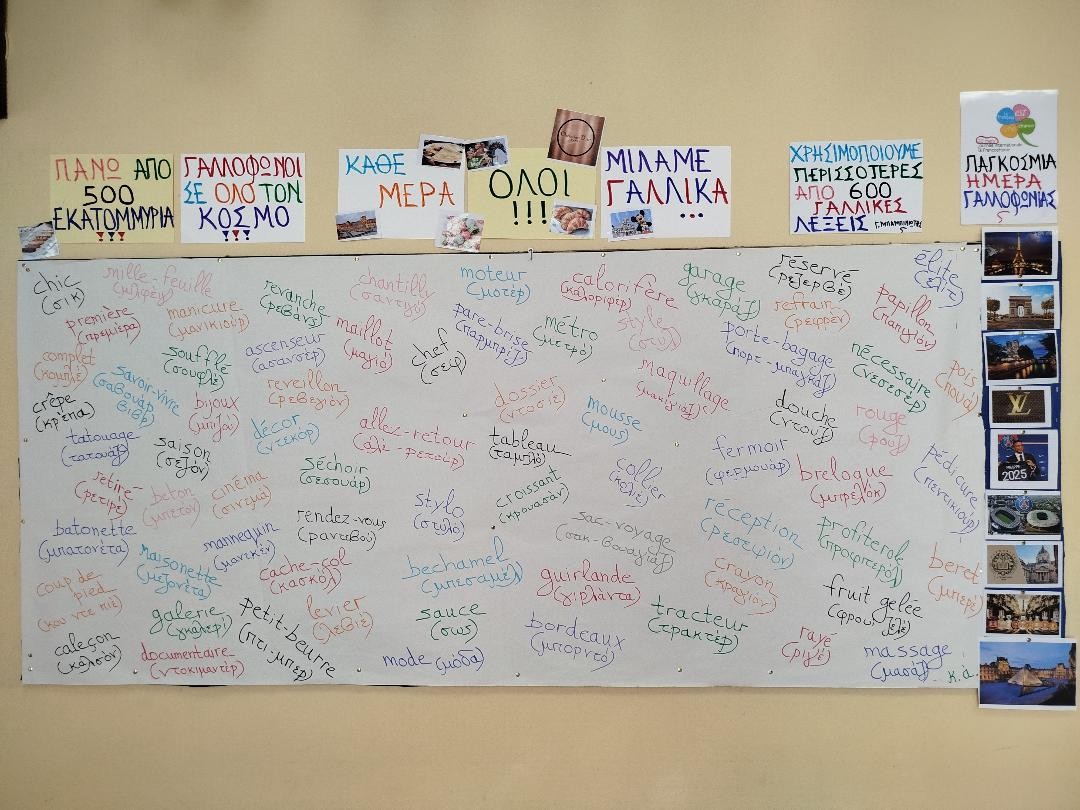 ΠΑΝΩ ΑΠΟ
500
ΕΚΑΤΟΜΜΥΡΙΑ
!!!
ΓΑΛΛΟΦΩΝΟΙ
ΣΕ ΟΛΟ ΤΟΝ
ΚΟΣΜΟ
!!!
ΚΑΘΕ
ΜΕΡΑ
ΟΛΟΙ
!!!
ΜΙΛΑΜΕ
ΓΑΛΛΙΚΑ
...
ΧΡΗΣΙΜΟΠΟΙΟΥΜΕ
ΠΕΡΙΣΣΟΤΕΡΕΣ
ΑΠΟ 600
ΓΑΛΛΙΚΕΣ
ΛΕΞΕΙΣ
ΠΑΓΚΟΣΜΙΑ
ΗΜΕΡΑ
ΓΑΛΛΟΦΩΝΙΑΣ
chic
(σικ)
mille-feuille
(μιλφέιγ)
revanche
(ρεβάνς)
chantilly
(σαντιγί)
moteur
(μοτέρ)
calorifère
(καλοριφέρ)
garage
(γκαράζ)
réservé
(ρεζερβέ)
élite
(ελίτ)
première
(πρεμιέρα)
manicure
(μανικιούρ)
maillot
(μαγιό)
pare-brise
(παρμπρίζ)
métro
(μετρό)
style
(στυλ)
refrain
(ρεφρέν)
papillon
(παπιγιόν)
complet
(κομπλέ)
soufflé
(σουφλέ)
ascenseur
(ασανσέρ)
chef
(σεφ)
porte-bagage
(πορτ-μπαγκάζ)
nécessaire
(νεσεσέρ)
pois
(πουά)
savoir-vivre
(σαβουάρ
βιβρ)
reveillon
(ρεβεγιόν)
dossier
(ντοσιέ)
maquillage
(μακιγιάζ)
crêpe
(κρέπα)
bijoux
(μπιζού)
mousse
(μους)
douche
(ντους)
rouge
(ρουζ)
tatouage
(τατουάζ)
saison
(σεζόν)
décor
(ντεκόρ)
allez-retour
(αλέ-ρετούρ)
tableau
(ταμπλό)
fermoir
(φερμουάρ)
pédicure
(πεντικιούρ)
retiré
(ρετιρέ)
beton
(μπετόν)
cinéma
(σινεμά)
séchoir
(σεσουάρ)
stylo
(στυλό)
croissant
(κρουασάν)
collier
(κολιέ)
breloque
(μπρελόκ)
batonette
(μπατονέτα)
mannequin
(μανεκέν)
rendez-vous
(ραντεβού)
sac-voyage
(σακ-βουαγιάζ)
réception
(ρεσεψιόν)
profiterole
(προφιτερόλ)
maisonette
(μεζονέτα)
cache-col
(κασκόλ)
bechamel
(μπεσαμέλ)
guirlande
(γιρλάντα)
crayon
(κραγιόν)
beret
(μπερέ)
coup de
pied
(κου ντε πιέ)
galerie
(γκαλερί)
petit-beurre
(πτι-μπερ)
levier
(λεβιέ)
sauce
(σως)
bordeaux
(μπορντό)
tracteur
(τρακτέρ)
fruit gelée
(φρουί ζελέ)
caleçon
(καλσόν)
documentaire
(ντοκιμαντέρ)
mode (μόδα)
rayé
(ριγέ)
massage
(μασάζ)
κ.ά.
2025